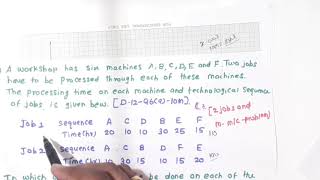 A workshop has six machines A, B, C, D, E and F. Two jobs
have to be processed through each of these machines.
The processing time on each machine and technological sequence
of jobs is given bew. [D-12-Q6(a)-10m].
[2 jobs and
m. m/c-problem]
Job 1 Sequence A C D B E F
Time (hr) 20 10 10 30 25 15
Job 2 Sequence A C B D F E
Time (hr) 10 30 15 10 15 20
In which or be done on each of the